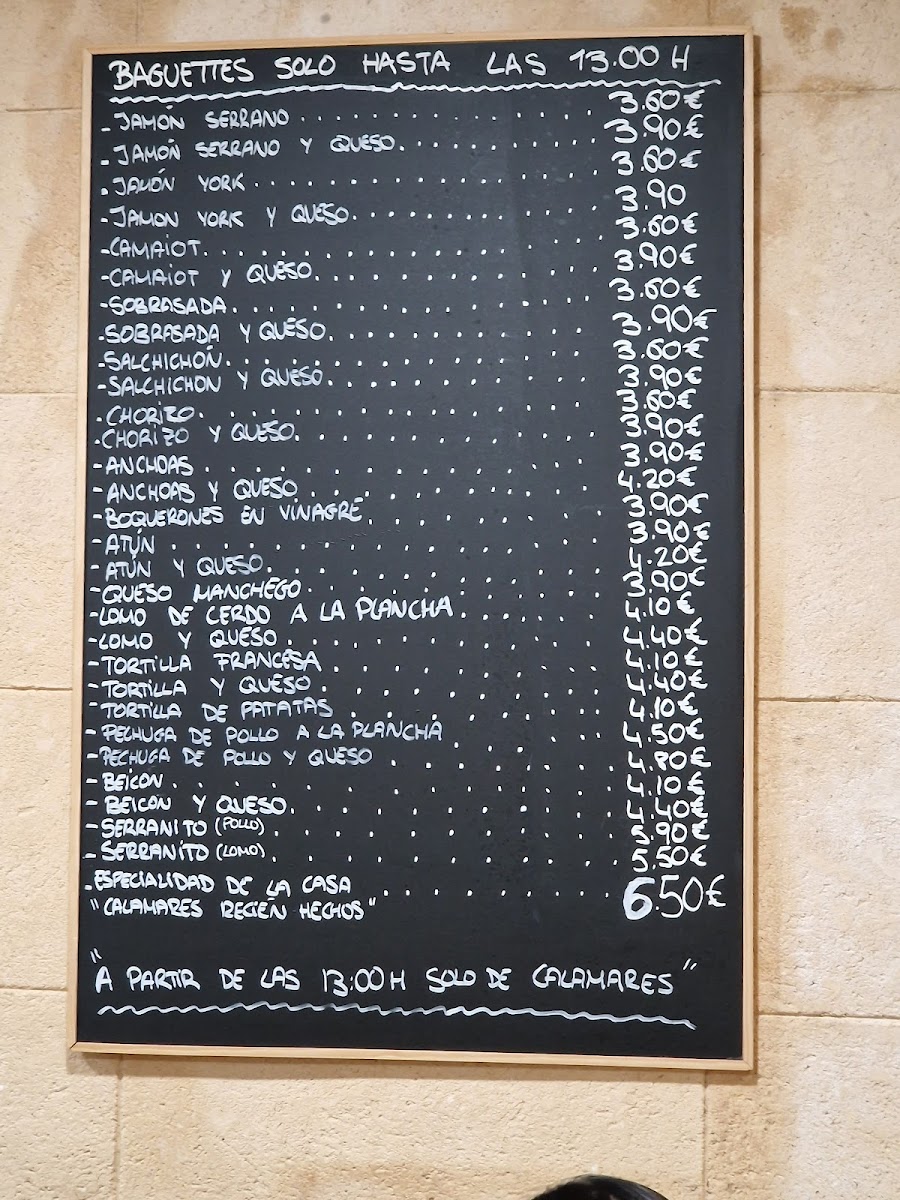 BAGUETTES SOLO HASTA LAS 13.00 H
- JAMÓN SERRANO............... 3.60€
- JAMÓN SERRANO Y QUESO.......... 3.90€
- JAMÓN YORK................. 3.60€
- JAMON YORK Y QUESO............ 3.90
- CAMAIOT................... 3.60€
- CAMAIOT Y QUESO.............. 3.90€
- SOBRASADA.................. 3.60€
- SOBRASADA Y QUESO............. 3.90€
- SALCHICHÓN................. 3.60€
- SALCHICHON Y QUESO............ 3.90€
- CHORIZO................... 3.60€
- CHORIZO Y QUESO.............. 3.90€
- ANCHOAS................... 3.90€
- ANCHOAS Y QUESO.............. 4.20€
- BOQUERONES EN VINAGRE.......... 3.90€
- ATÚN..................... 3.90€
- ATÚN Y QUESO................ 4.20€
- QUESO MANCHEGO.............. 3.90€
- LOMO DE CERDO A LA PLANCHA....... 4.10€
- LOMO Y QUESO................ 4.40€
- TORTILLA FRANCESA............. 4.10€
- TORTILLA Y QUESO............. 4.40€
- TORTILLA DE PATATAS............ 4.10€
- PECHUGA DE POLLO A LA PLANCHA...... 4.50€
- PECHUGA DE POLLO Y QUESO......... 4.80€
- BEICON.................... 4.10€
- BEICON Y QUESO............... 4.40€
- SERRANITO (POLLO)............. 5.90€
- SERRANITO (LOMO).............. 5.50€
- ESPECIALIDAD DE LA CASA ......... 6.50€
"CALAMARES RECIÉN HECHOS"
"A PARTIR DE LAS 13:00 H SOLO DE CALAMARES"